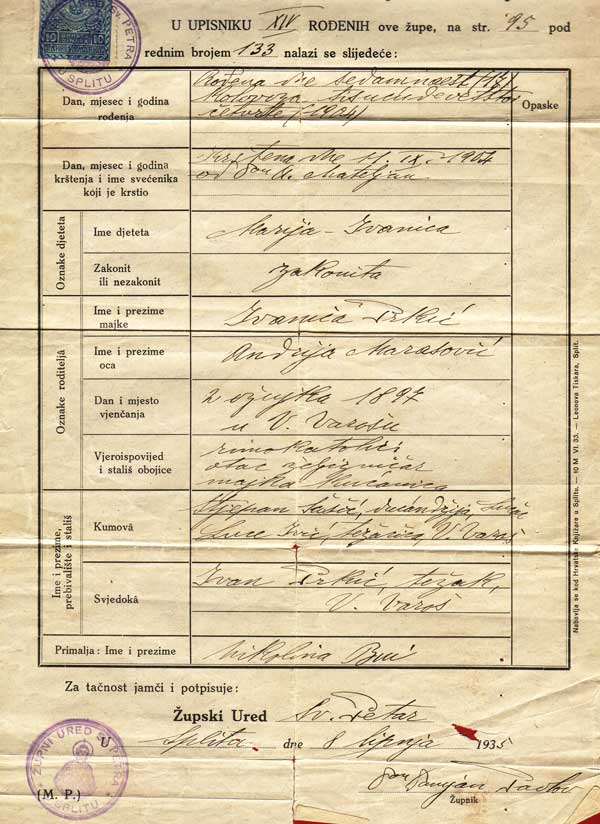 U UPISNIKU XIV ROĐENIH ove župe, na str. 95 pod
rednim brojem 133 nalazi se slijedeće:
SV. PETRA
U SPLITU
Dan, mjesec i godina
rođenja
Rođena dne sedamnaest (17)
Kolovoza tisućudevetsto
četvrte (1904)
Opaske
Dan, mjesec i godina
krštenja i ime svećenika
koji je krstio
Krštena dne 11. IX. 1904
od don A. Mateljan
Oznake djeteta
Ime djeteta
Marija - Ivanica
Zakonit
ili nezakonit
zakonita
Oznake roditeljâ
Ime i prezime
majke
Ivanica Prkić
Ime i prezime
oca
Andrija Marasović
Dan i mjesto
vjenčanja
2 ožujka 1897
u V. Varošu
Vjeroispovijed
i stališ obojice
rimokatolici
otac željezničar
majka kućanica
Ime i prezime,
prebivalište i stališ
Kumovâ
Stjepan
Luce težačica V. Varoš
Svjedokâ
Ivan Prkić, težak,
V. Varoš
Primalja: Ime i prezime
Nikolina
Nabavlja se kod Hrvatske Knjižare u Splitu. — 10 M VI. 33. — Leonova Tiskara, Split.
Za tačnost jamči i potpisuje:
Župski Ured Sv. Petar
U Splitu dne 8 lipnja 1935
ŽUPNI URED SV. PETRA
U SPLITU
(M. P.)
don Damjan Pavlov
Župnik